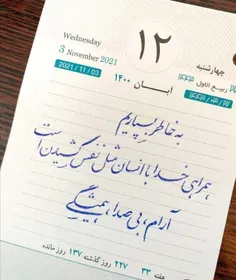 Wednesday
3 November 2021
2021 / 11 / 03
۱۲
چهارشنبه
ربیع الاول
آبان ۱۴۰۰
به خاطر بسپاریم
همراهی خدا با انسان مثل نفس کشیدن است
آرام، بی صدا، همیشگی
هفته ۳۳ ۲۲۷ روز گذشته ۱۳۷ روز مانده